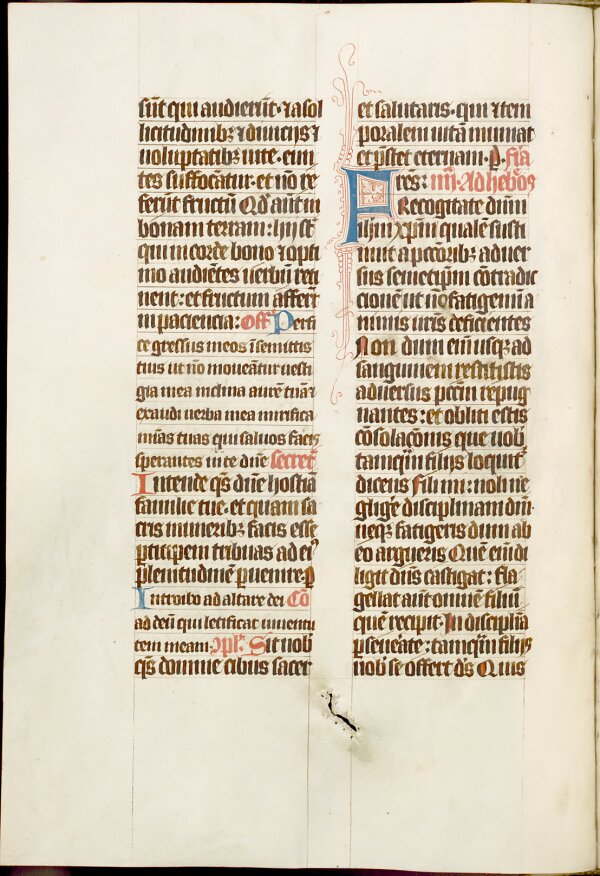 sūt qui audierūt · ⁊ a sol
licitudinibꝫ ⁊ diuicijs ⁊
uoluptatibꝫ uite · eun
tes suffocātur · et nō re
ferūt fructū Qđ aūt in
bonam terram : hij sūt
qui in corde bono ⁊ opti
mo audiētes uerbū reti
nent : et fructum afferūt
in paciencia : Off̄ Perfi
ce gressus meos ī semitis
tuis ut nō moueātur uesti
gia mea inclina aurē tuā ⁊
exaudi uerba mea mirifica
mīas tuas qui saluos facis
sperantes in te dn̄e secret̄
Intende q̄s dn̄e hostiā
familie tue · et quam sa
cris muneribꝫ facis esse
ꝑticipem tribuas ad eiꝰ
plenitudinē ꝑuenire · ꝑ
Introibo ad altare dei Cō
ad deū qui letificat iuuentu
tem meam · ꝯpl̄ · Sit nob̄
q̄s domine cibus sacer
et salutaris · qui ⁊ tem
poralem uitā muniat
et p̄stet eternam · ꝑ · Fr̄a
Fratres : Ad hebr̄os
Recogitate dn̄m
ih̄m xp̄m qualē susti
nuit a pctōribꝫ aduer
sus semetip̄m cōtradic
cionē ut nō fatigemini a
nimis ur̄is deficientes
Non dum eni usqꝫ ad
sanguinem restitistis
aduersus pctm̄ repug
nantes : et obliti estis
cōsolacōnis que uob̄
tamq̄m filijs loquit̄
dicens Fili mi : noli ne
glige disciplinam dn̄i ·
neqꝫ fatigeris dum ab
eo argueris Quē eni di
ligit dn̄s castigat : fla
gellat aūt omnē filiū
quē recipit · In disciplīa
ꝑseuēate : tamq̄m filijs
nob̄ se offert dꝭ Quis